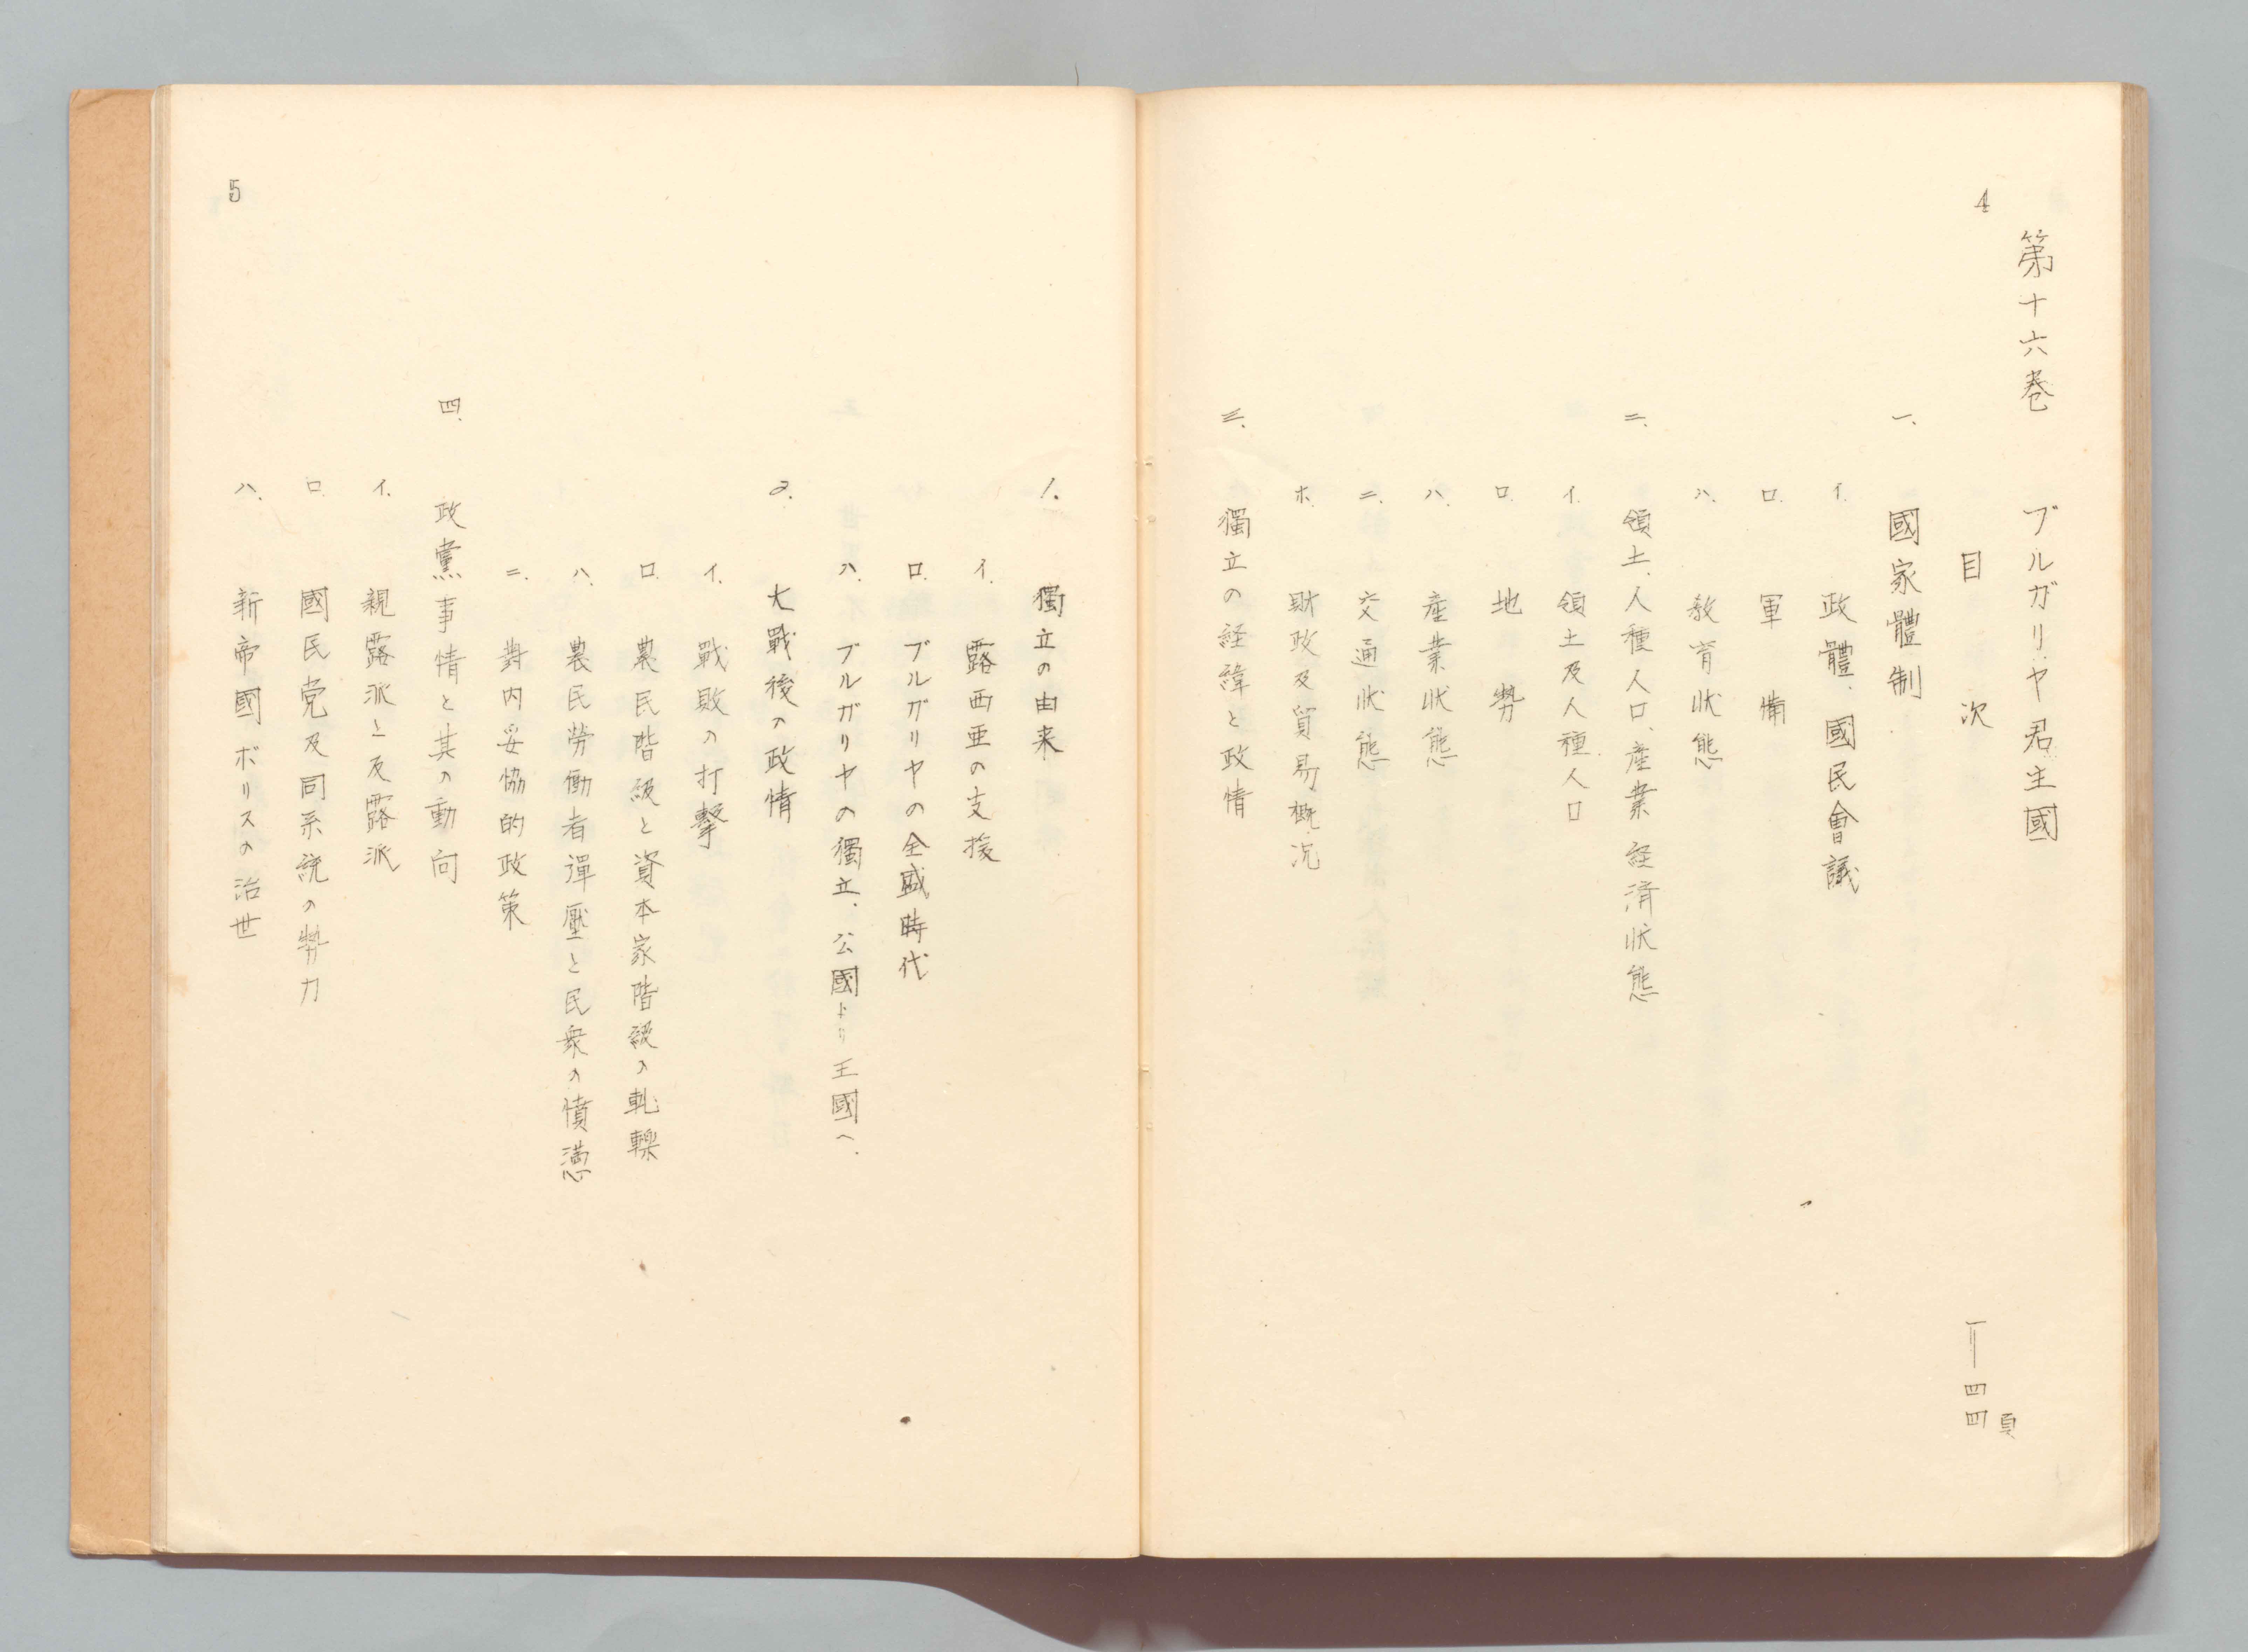 4
第十六巻 ブルガリヤ君主國
目次 一—四四頁
一、國家體制
イ、政體、國民會議
ロ、軍備
ハ、教育状態
二、領土、人種人口、産業経済状態
イ、領土及人種人口
ロ、地勢
ハ、産業状態
ニ、交通状態
ホ、財政及貿易概況
三、獨立の経緯と政情
1. 獨立の由来
イ、露西亜の支援
ロ、ブルガリヤの全盛時代
ハ、ブルガリヤの獨立、公國より王國へ、
2. 大戰後の政情
イ、戰敗の打擊
ロ、農民階級と資本家階級の軋轢
ハ、農民労働者彈壓と民衆の憤懣
ニ、對内妥協的政策
四、政黨事情と其の動向
イ、親露派と反露派
ロ、國民党及同系統の勢力
ハ、新帝國ボリスの治世
5